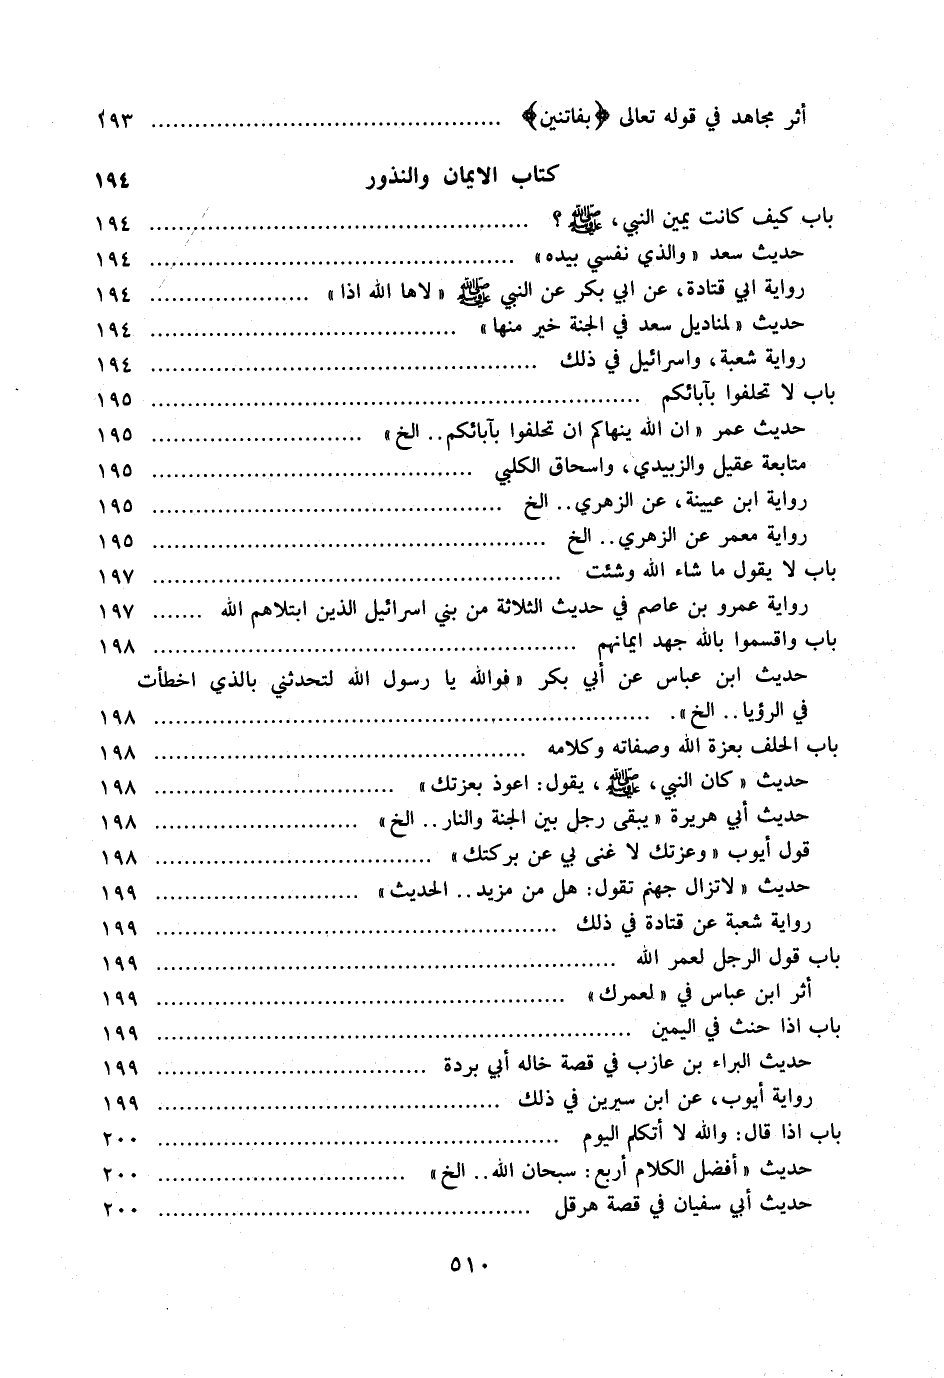 أثر مجاهد في قوله تعالى ﴿بفاتنين﴾ ................ ١٩٣
كتاب الايمان والنذور ١٩٤
باب كيف كانت يمين النبي، ﷺ ؟ ................ ١٩٤
حديث سعد « والذي نفسي بيده » ................ ١٩٤
رواية ابي قتادة، عن ابي بكر عن النبي ﷺ « لاها الله اذا » ................ ١٩٤
حديث « لمناديل سعد في الجنة خير منها » ................ ١٩٤
رواية شعبة، واسرائيل في ذلك ................ ١٩٤
باب لا تحلفوا بآبائكم ................ ١٩٥
حديث عمر « ان الله ينهاكم ان تحلفوا بآبائكم.. الخ » ................ ١٩٥
متابعة عقيل والزبيدي، واسحاق الكلبي ................ ١٩٥
رواية ابن عيينة، عن الزهري.. الخ ................ ١٩٥
رواية معمر عن الزهري.. الخ ................ ١٩٥
باب لا يقول ما شاء الله وشئت ................ ١٩٧
رواية عمرو بن عاصم في حديث الثلاثة من بني اسرائيل الذين ابتلاهم الله ....... ١٩٧
باب واقسموا بالله جهد ايمانهم ................ ١٩٨
حديث ابن عباس عن أبي بكر « فوالله يا رسول الله لتحدثني بالذي اخطأت
في الرؤيا.. الخ ». ................ ١٩٨
باب الحلف بعزة الله وصفاته وكلامه ................ ١٩٨
حديث « كان النبي، ﷺ، يقول: اعوذ بعزتك » ................ ١٩٨
حديث أبي هريرة « يبقى رجل بين الجنة والنار.. الخ » ................ ١٩٨
قول أيوب « وعزتك لا غنى بي عن بركتك » ................ ١٩٨
حديث « لاتزال جهنم تقول: هل من مزيد.. الحديث » ................ ١٩٩
رواية شعبة عن قتادة في ذلك ................ ١٩٩
باب قول الرجل لعمر الله ................ ١٩٩
أثر ابن عباس في « لعمرك » ................ ١٩٩
باب اذا حنث في اليمين ................ ١٩٩
حديث البراء بن عازب في قصة خاله أبي بردة ................ ١٩٩
رواية أيوب، عن ابن سيرين في ذلك ................ ١٩٩
باب اذا قال: والله لا أتكلم اليوم ................ ٢٠٠
حديث « أفضل الكلام أربع: سبحان الله.. الخ » ................ ٢٠٠
حديث أبي سفيان في قصة هرقل ................ ٢٠٠
٥١٠